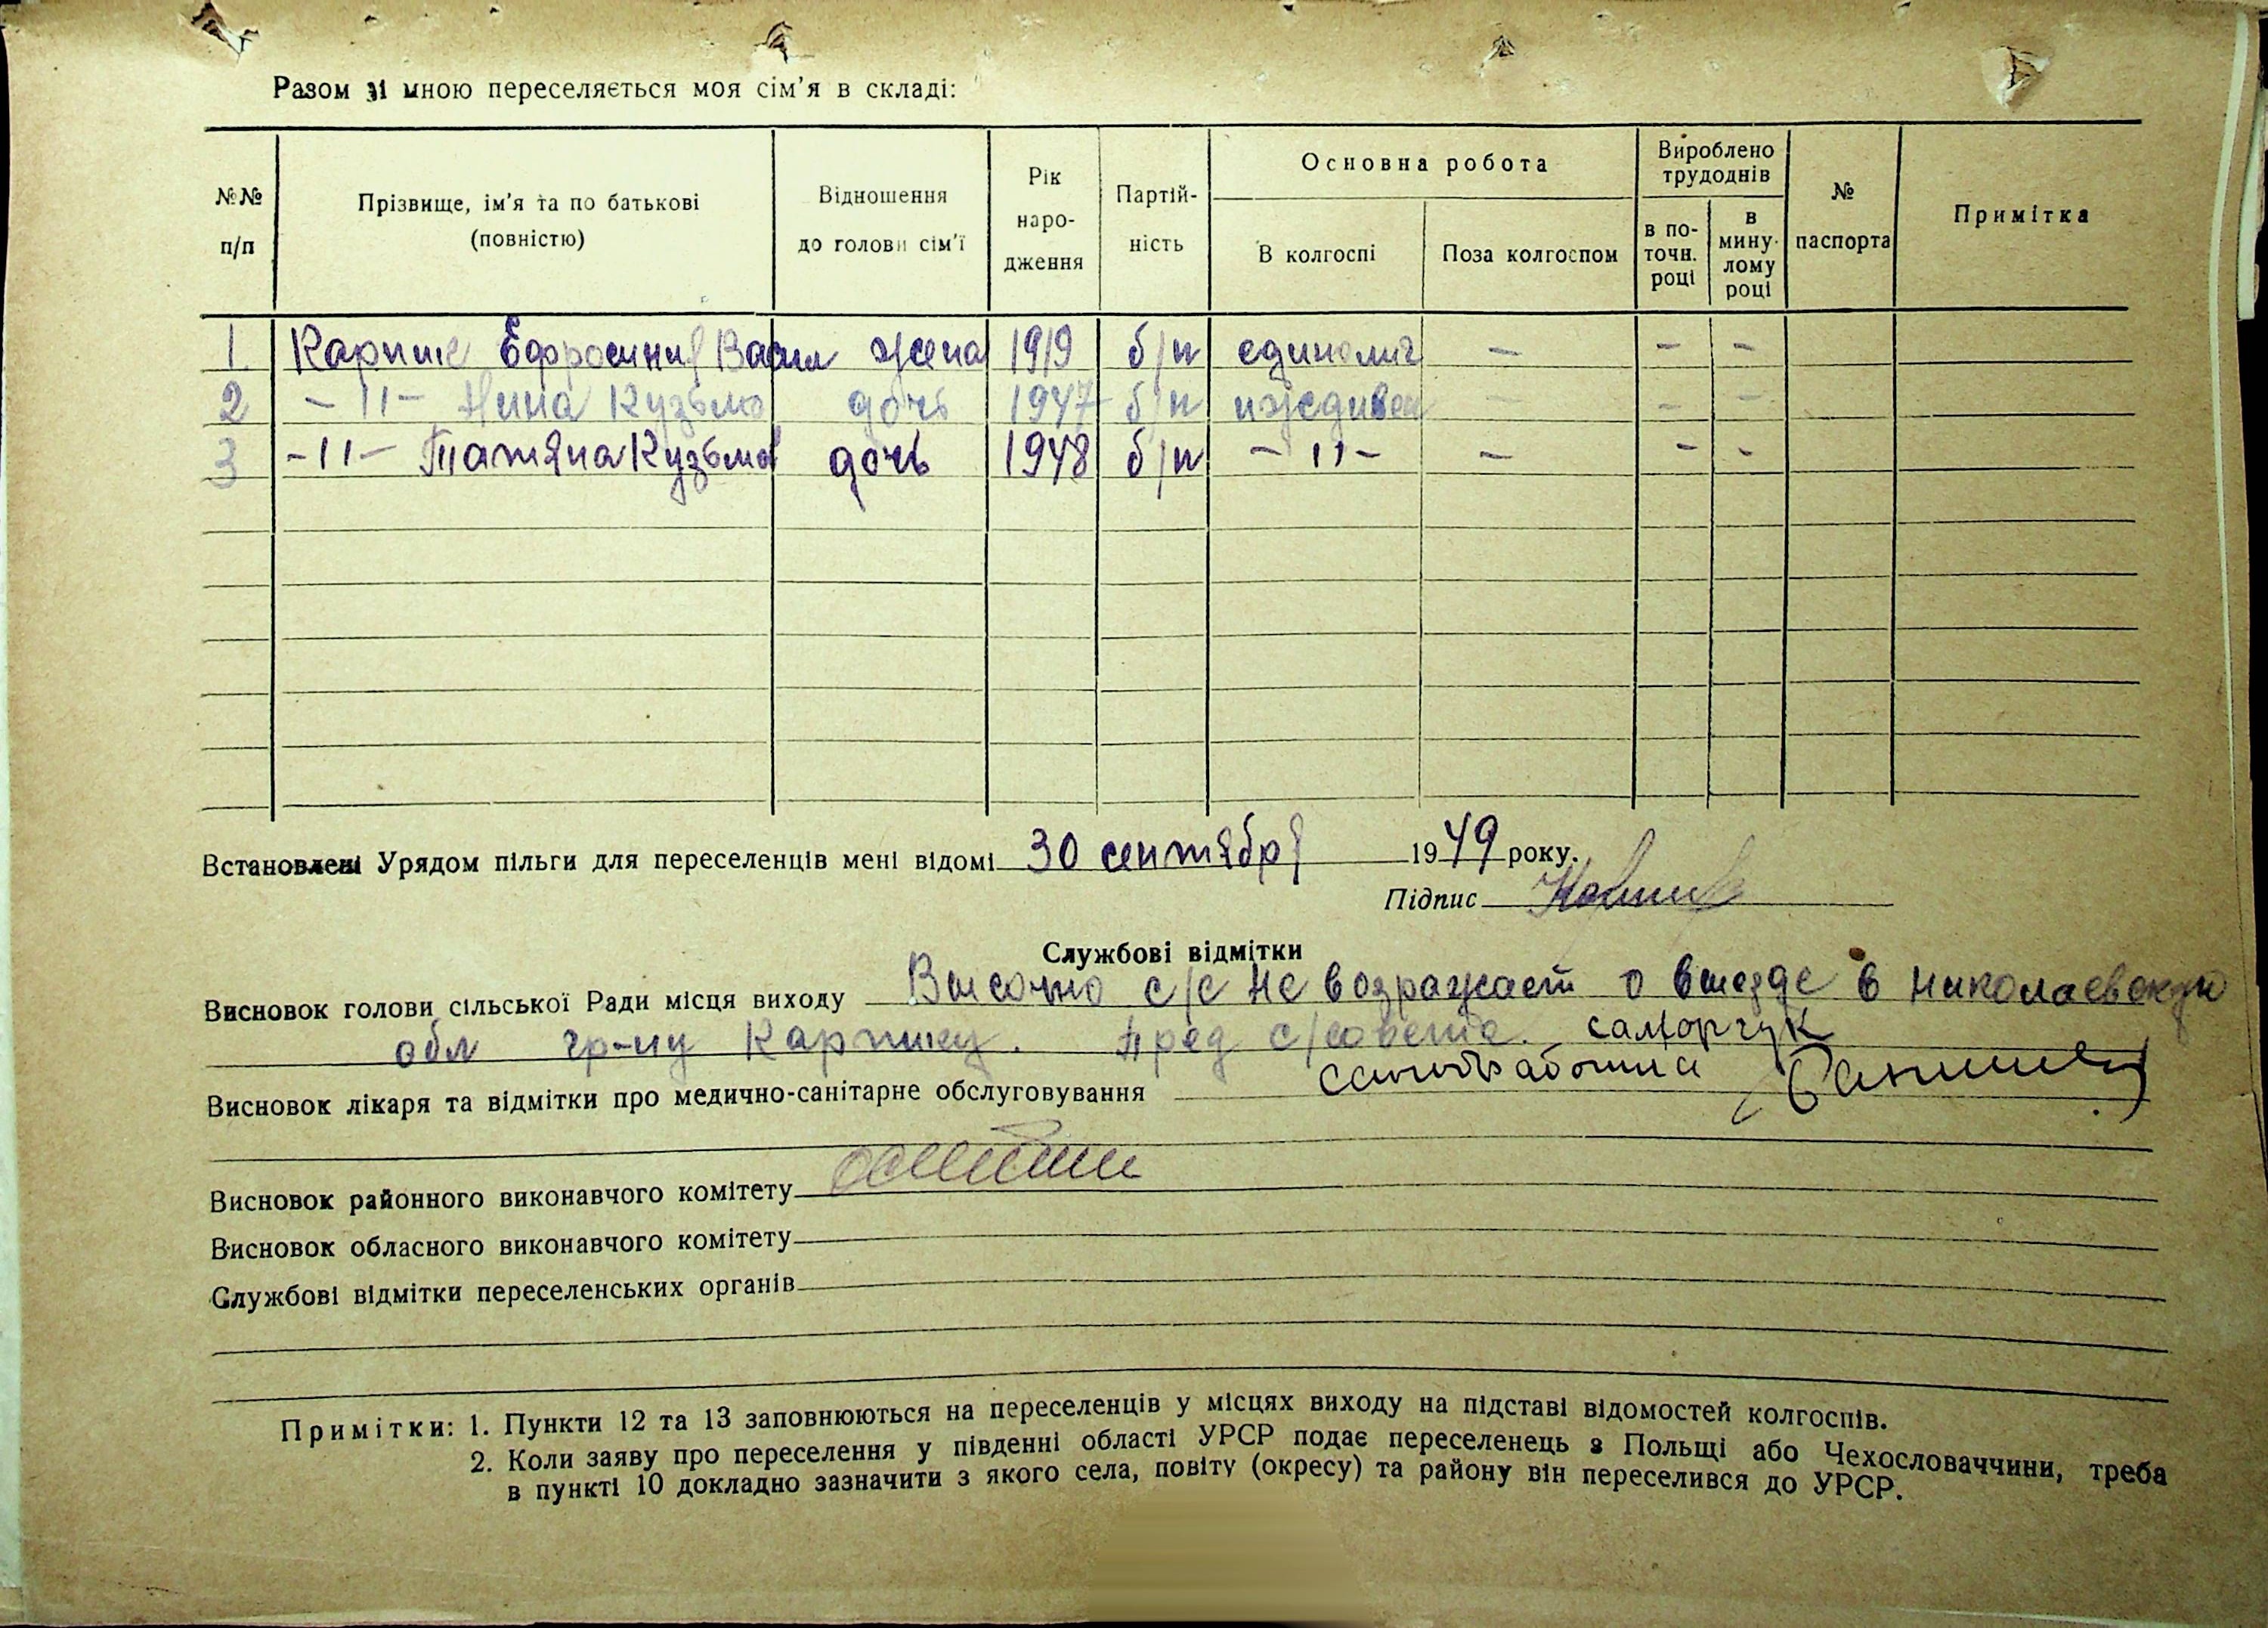 Разом зі мною переселяється моя сім'я в складі:
№№ п/п
Прізвище, ім'я та по батькові (повністю)
Відношення до голови сім'ї
Рік наро-дження
Партій-ність
Основна робота
В колгоспі
Поза колгоспом
Вироблено трудоднів
в по-точн. році
в мину-лому році
№ паспорта
Примітка
1. Карпик Ефросиния Васил жена 1919 б/п единолич – – –
2 –"– Нина Кузьмо дочь 1947 б/п иждивен – – –
3 –"– Татяна Кузьмов дочь 1948 б/п –"– – – –
Встановлені Урядом пільги для переселенців мені відомі 30 сентября 1949 року.
Підпис
Службові відмітки
Висновок голови сільської Ради місця виходу с/с не возражает о выезде в Николаевскую
обл гр-ну . Пред с/совета.
Висновок лікаря та відмітки про медично-санітарне обслуговування
Висновок районного виконавчого комітету
Висновок обласного виконавчого комітету
Службові відмітки переселенських органів
Примітки: 1. Пункти 12 та 13 заповнюються на переселенців у місцях виходу на підставі відомостей колгоспів.
2. Коли заяву про переселення у південні області УРСР подає переселенець з Польщі або Чехословаччини, треба
в пункті 10 докладно зазначити з якого села, повіту (окресу) та району він переселився до УРСР.